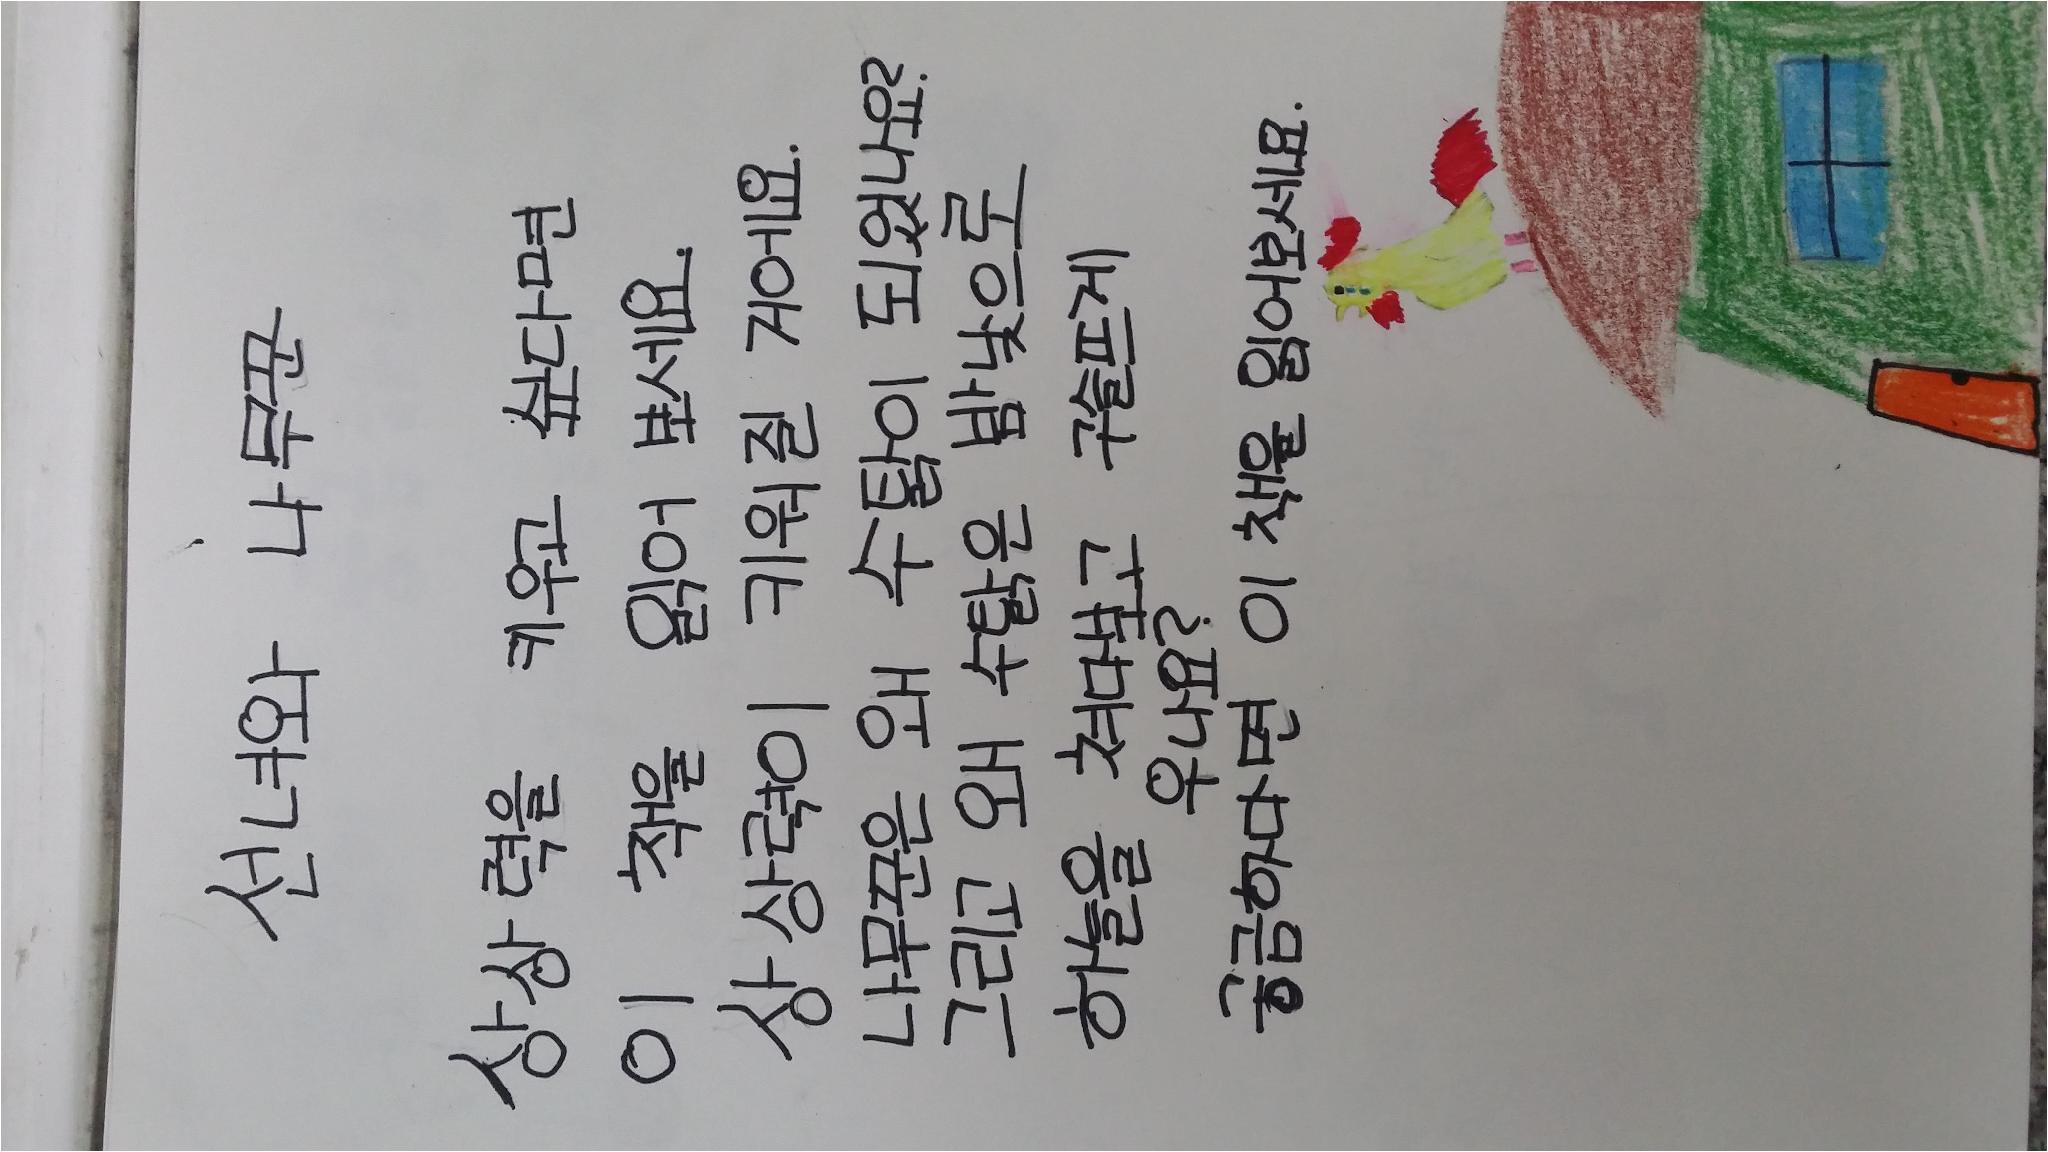 선녀와 나무꾼
상상력을 키우고 싶다면
이 책을 읽어 보세요.
상상력이 키워질 거에요.
나무꾼은 왜 수탉이 되었나요?
그리고 왜 수탉은 밤낮으로
하늘을 쳐다보고 구슬프게
우나요?
궁금하다면 이 책을 읽어보세요.